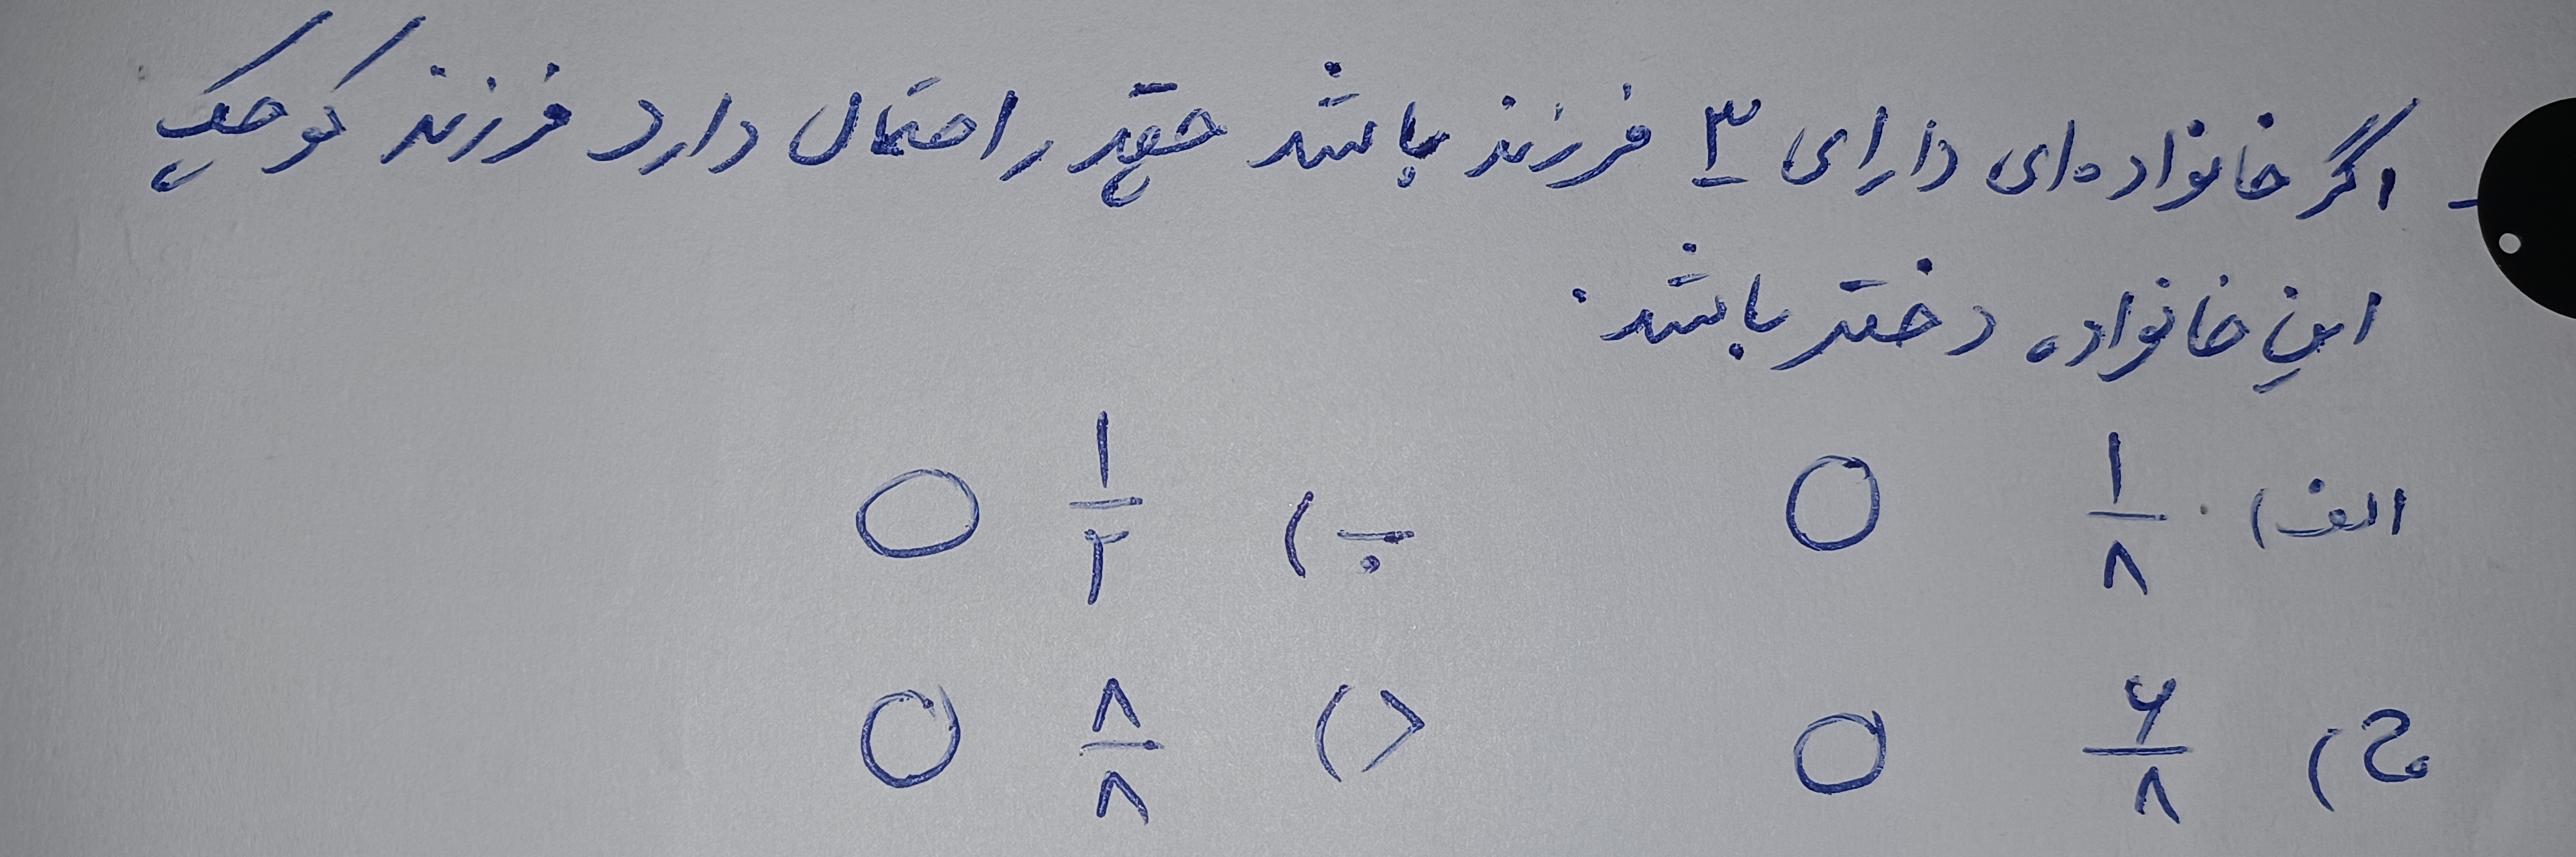 - اگر خانواده‌ای دارای ۳ فرزند باشد چقدر احتمال دارد فرزند کوچک
این خانواده دختر باشد.
الف) ۱/۸ ب) ۱/۲
ج) ۶/۸ د) ۸/۸